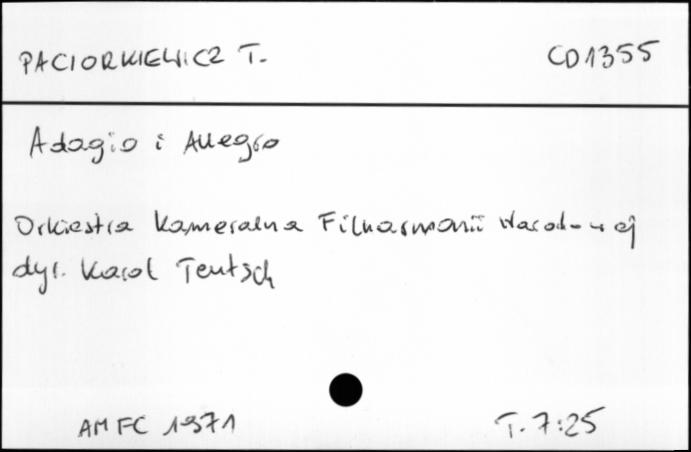 PACIORKIEWICZ T. CD1355
Adagio i Allegro
Orkiestra Kameralna Filharmonii Narodowej
dyr. Karol Teutsch
AMFC 1971 T. 7:25